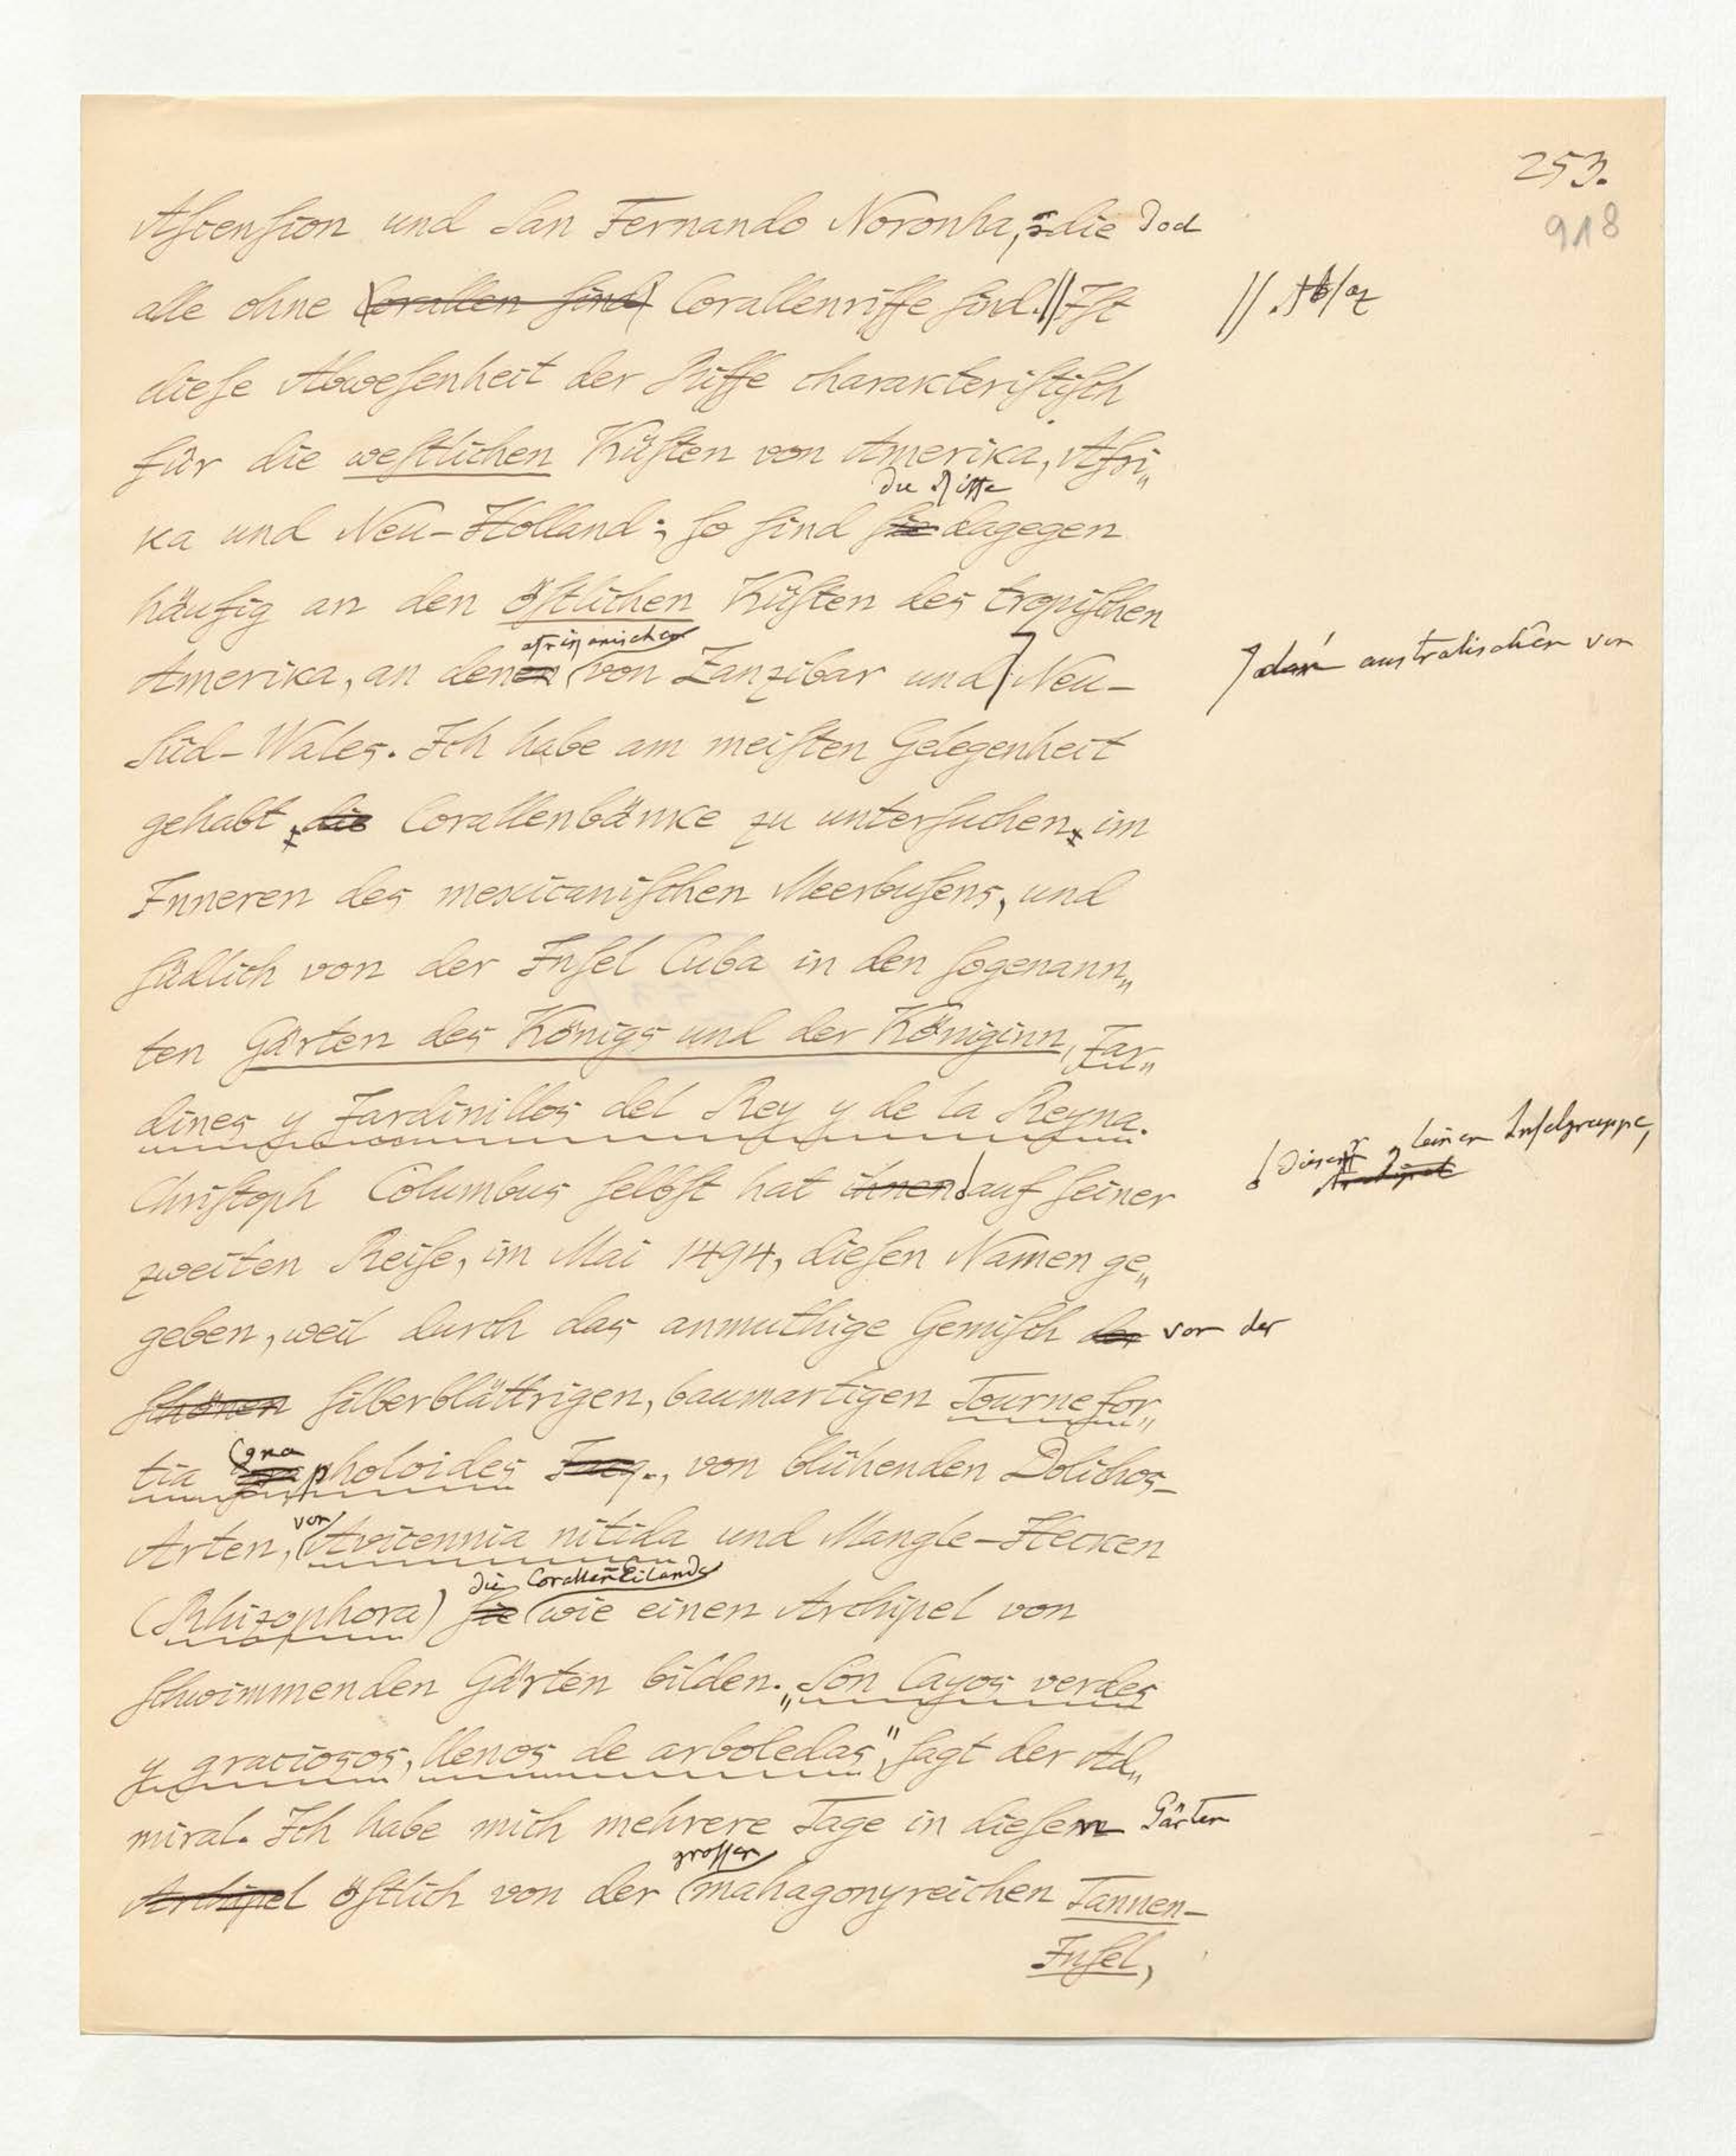 253.
918
Ascension und San Fernando Noronha, die doch
alle ohne Corallen sind Corallenriffe sind.|| Ist
|| . Absaz
diese Abwesenheit der Riffe charakteristisch
für die westlichen Küsten von Amerika, Afri„
die Riffe
ka und Neu-Holland; so sind sie dagegen
häufig an den östlichen Küsten des tropischen
afrikanischen
Amerika, an denen von Zanzibar und Neu-
den australischen von
Süd-Wales. Ich habe am meisten Gelegenheit
gehabt, die Corallenbänke zu untersuchen, im
Inneren des mexicanischen Meerbusens, und
südlich von der Insel Cuba in den sogenann„
ten Gärten des Königs und der Königinn, Jar„
dines y Jardinillos del Rey y de la Reyna.
Christoph Columbus selbst hat ihnen auf seiner
Dieser kleinen Inselgruppe,
Archipel
zweiten Reise, im Mai 1494, diesen Namen ge„
geben, weil durch das anmuthige Gemisch der von der
schönen silberblättrigen, baumartigen Tournefor„
gna
tia pholoides Jacq., von blühenden Dolichos-
von
Arten, Avicennia nitida und Mangle-Hecken
die Corallen Eilande
(Rhizophora) sie wie einen Archipel von
schwimmenden Gärten bilden. „Son Cayos verdes
y graciosos, llenos de arboledas", sagt der Ad„
miral. Ich habe mich mehrere Tage in diesen Gärten
grossen
Archipel östlich von der mahagonyreichen Tannen-
Insel,